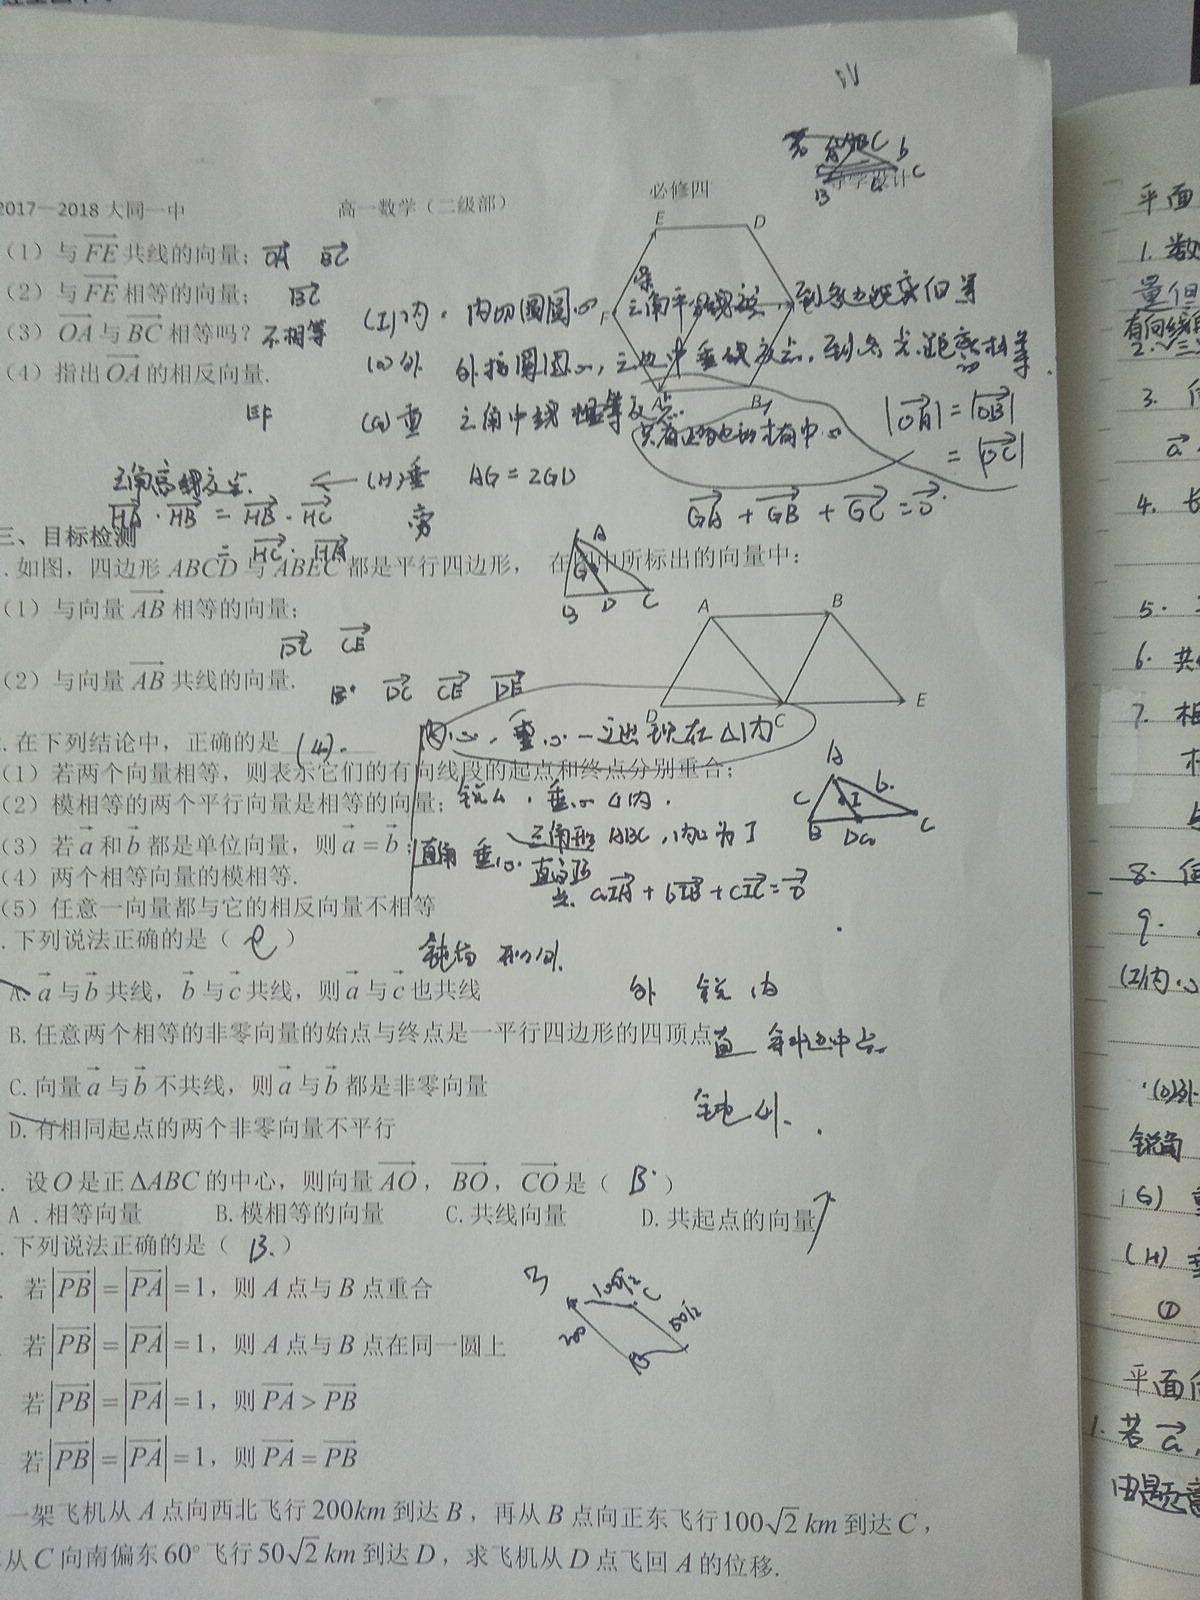 2017—2018 大同一中 高一数学（二级部） 必修四 导学设计
（1）与 FE 共线的向量； OA BC
（2）与 FE 相等的向量； BC
（3）OA 与 BC 相等吗？不相等
（4）指出 OA 的相反向量.
E D
F
A B
(I)内. 内切圆圆心 三角平分线交点，到各边距离相等
(O)外 外接圆圆心，三边中垂线交点，到各点距离相等.
(G)重 三角中线 交点.
|OA| = |OB|
= |OC|
三角高线交点. ← (H)垂 AG = 2GD
HA · HB = HB · HC
= HC · HA
旁
GA + GB + GC = 0
三、目标检测
.如图，四边形 ABCD 与 ABEC 都是平行四边形， 在图中所标出的向量中：
A
G
B D C
（1）与向量 AB 相等的向量；
DC CE
（2）与向量 AB 共线的向量.
DC CE DE
A B
D C E
内心，重心一定出现在△内
.在下列结论中，正确的是 (4).
（1）若两个向量相等，则表示它们的有向线段的起点和终点分别重合；
（2）模相等的两个平行向量是相等的向量； 锐△. 垂心△内.
（3）若 a 和 b 都是单位向量，则 a = b； 直角 垂心. 直角顶点. 三角形 ABC，内心为 I
aIA + bIB + cIC = 0
A b
c I
B D a C
（4）两个相等向量的模相等.
（5）任意一向量都与它的相反向量不相等
.下列说法正确的是（ C ）
钝角
A. a 与 b 共线，b 与 c 共线，则 a 与 c 也共线
外 锐 内
B. 任意两个相等的非零向量的始点与终点是一平行四边形的四顶点
直 斜边中点.
C. 向量 a 与 b 不共线，则 a 与 b 都是非零向量
钝 外.
D. 有相同起点的两个非零向量不平行
. 设 O 是正 ΔABC 的中心，则向量 AO，BO，CO 是（ B. ）
A .相等向量 B. 模相等的向量 C. 共线向量 D. 共起点的向量
.下列说法正确的是（ B. ）
. 若|PB| = |PA| = 1，则 A 点与 B 点重合
若|PB| = |PA| = 1，则 A 点与 B 点在同一圆上
若|PB| = |PA| = 1，则 PA > PB
若|PB| = |PA| = 1，则 PA = PB
100√2 C
200 50√2
一架飞机从 A 点向西北飞行 200km 到达 B，再从 B 点向正东飞行 100√2 km 到达 C，
从 C 向南偏东 60° 飞行 50√2 km 到达 D，求飞机从 D 点飞回 A 的位移.
平面
1. 数
量但
有向线
2.
3.
a
4.
5.
6. 共
7. 相
8.
9.
(I)内心
(O)外
锐角
(G) 重
(H) 垂
①
平面向
1. 若 a,
由题意